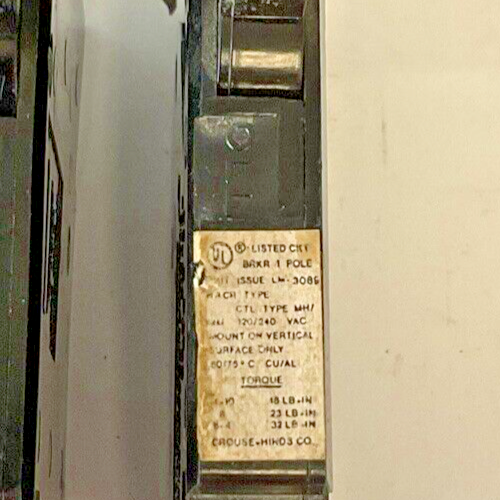 UL ® LISTED CKT
BRKR 1 POLE
ISSUE LM-3089
HACR TYPE
CTL TYPE MH/
120/240 VAC
MOUNT ON VERTICAL
SURFACE ONLY
60/75°C CU/AL
TORQUE
18 LB-IN
8 23 LB-IN
6-4 32 LB-IN
CROUSE-HINDS CO.